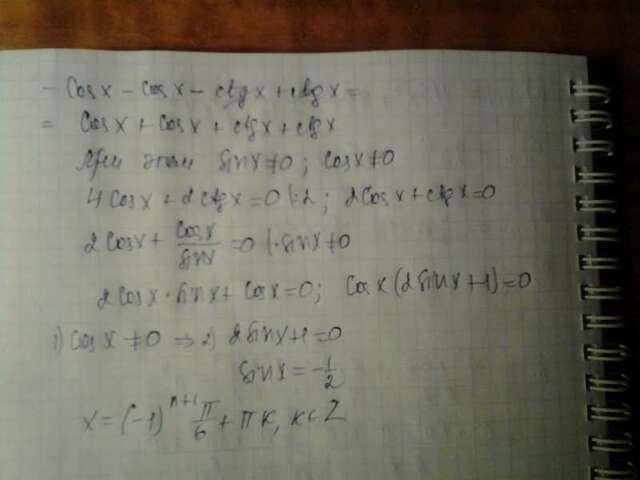 - Cos x - cos x - ctg x + ctg x =
= Cos x + cos x + ctg x + ctg x
При этом sin x ≠ 0; cos x ≠ 0
4 cos x + 2 ctg x = 0 |:2; 2 cos x + ctg x = 0
2 cos x + cos x / sin x = 0 |· sin x ≠ 0
2 cos x · sin x + cos x = 0; cos x (2 sin x + 1) = 0
1) cos x ≠ 0 ⇒ 2) 2 sin x + 1 = 0
sin x = -1/2
x = (-1)^{n+1} π/6 + πk, k ∈ Z